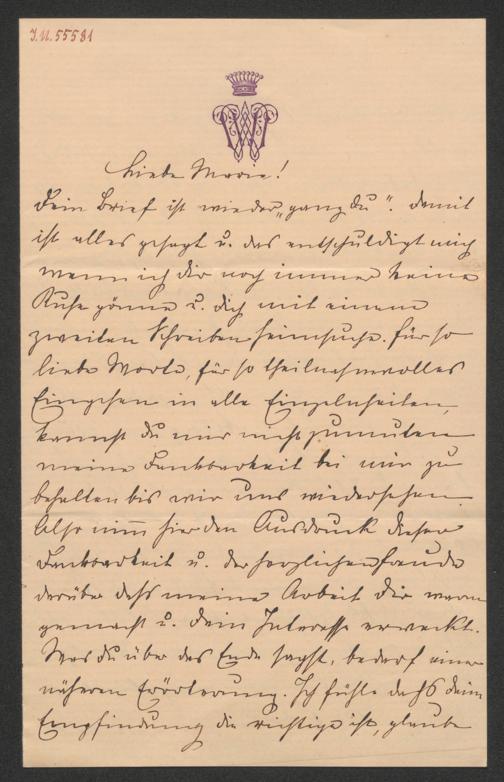 I.N. 55591
Liebe Marie!
Dein Brief ist wieder „ganz Du". Damit
ist alles gesagt u. das entschuldigt mich
wenn ich dir noch immer keine
Ruhe gönne u. dich mit einem
zweiten Schreiben heimsuche. Für so
liebe Worte, für so theilnahmvolles
Eingehen in alle Einzelnheiten,
kannst du mir nicht zumuten
meine Dankbarkeit bei mir zu
behalten bis wir uns wiedersehen.
Also nimm hier den Ausdruck dieser
Dankbarkeit u. der herzlichen Freude
darüber dass meine Arbeit dir warm
gemacht u. dein Interesse erweckt.
Was du über das Ende sagst, bedarf einer
näheren Erörterung. Ich fühle daß deine
Empfindung die richtige ist, glaube